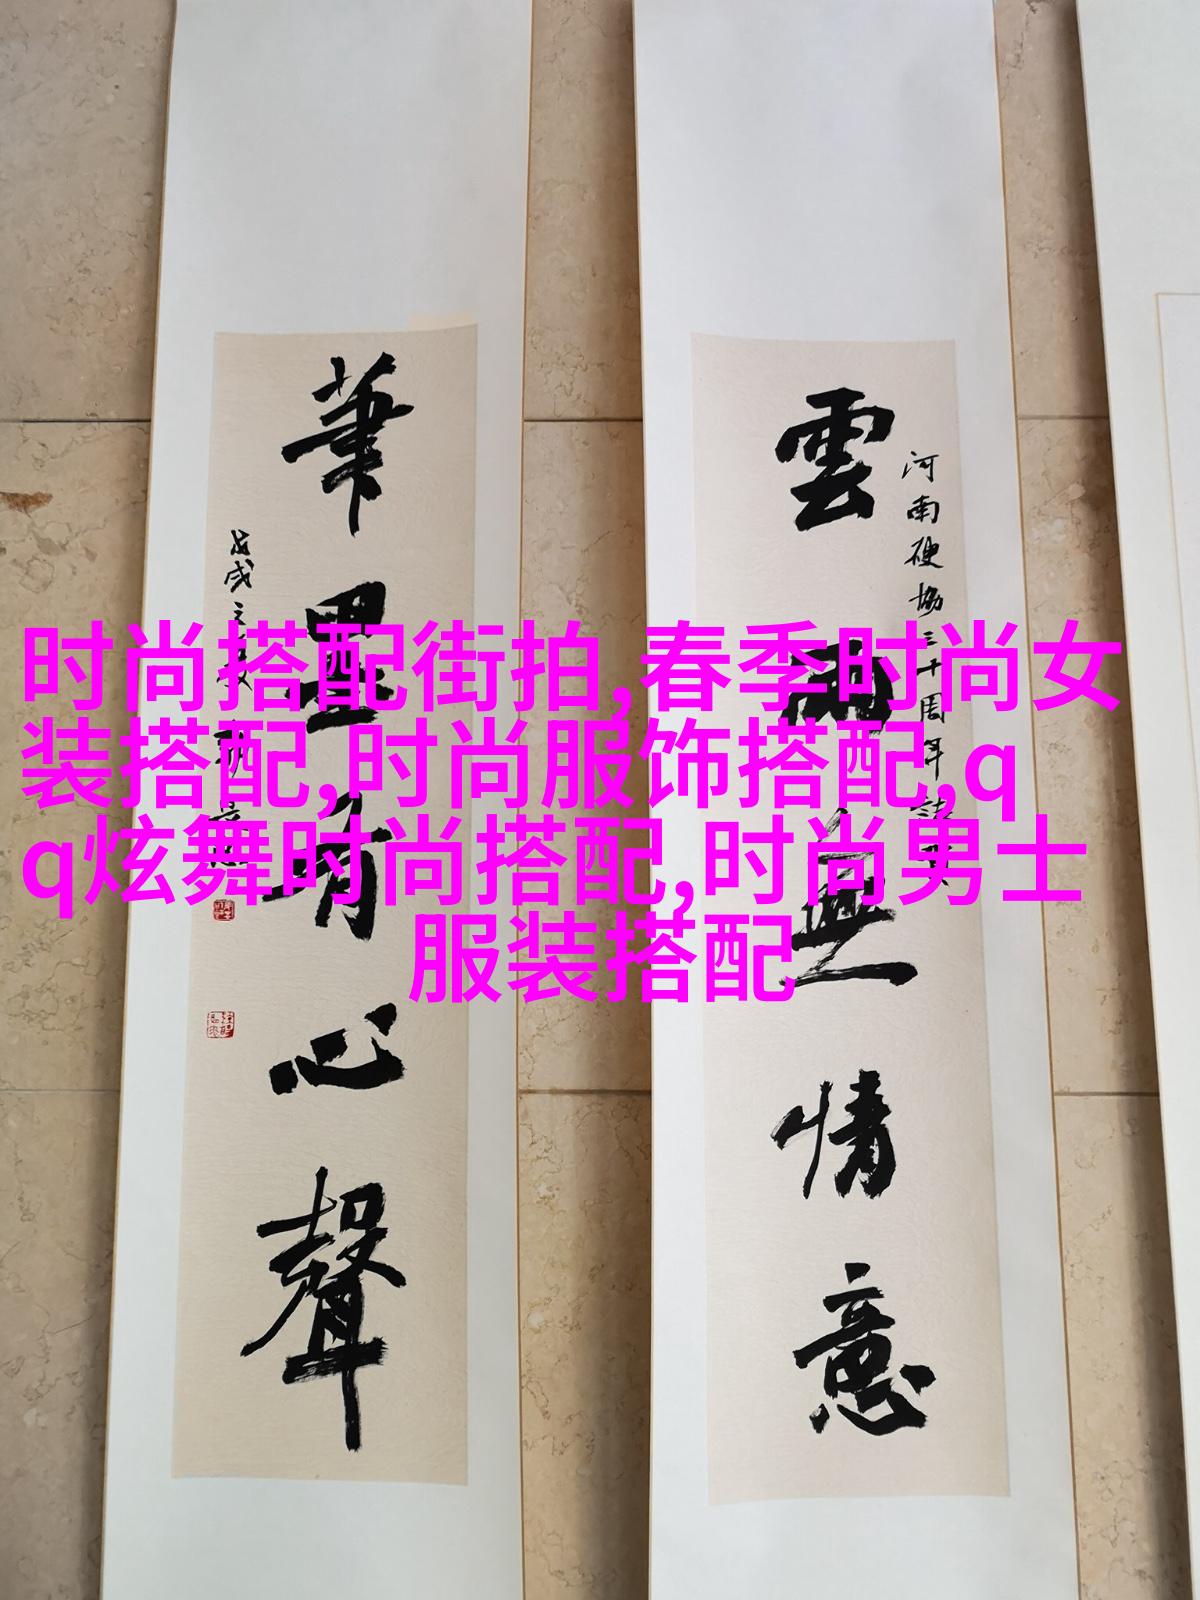 雲雨無情意
河南硬協三十周年
筆墨有心聲
戊戌之
时尚搭配街拍,春季时尚女
装搭配,时尚服饰搭配,q
q炫舞时尚搭配,时尚男士
服装搭配